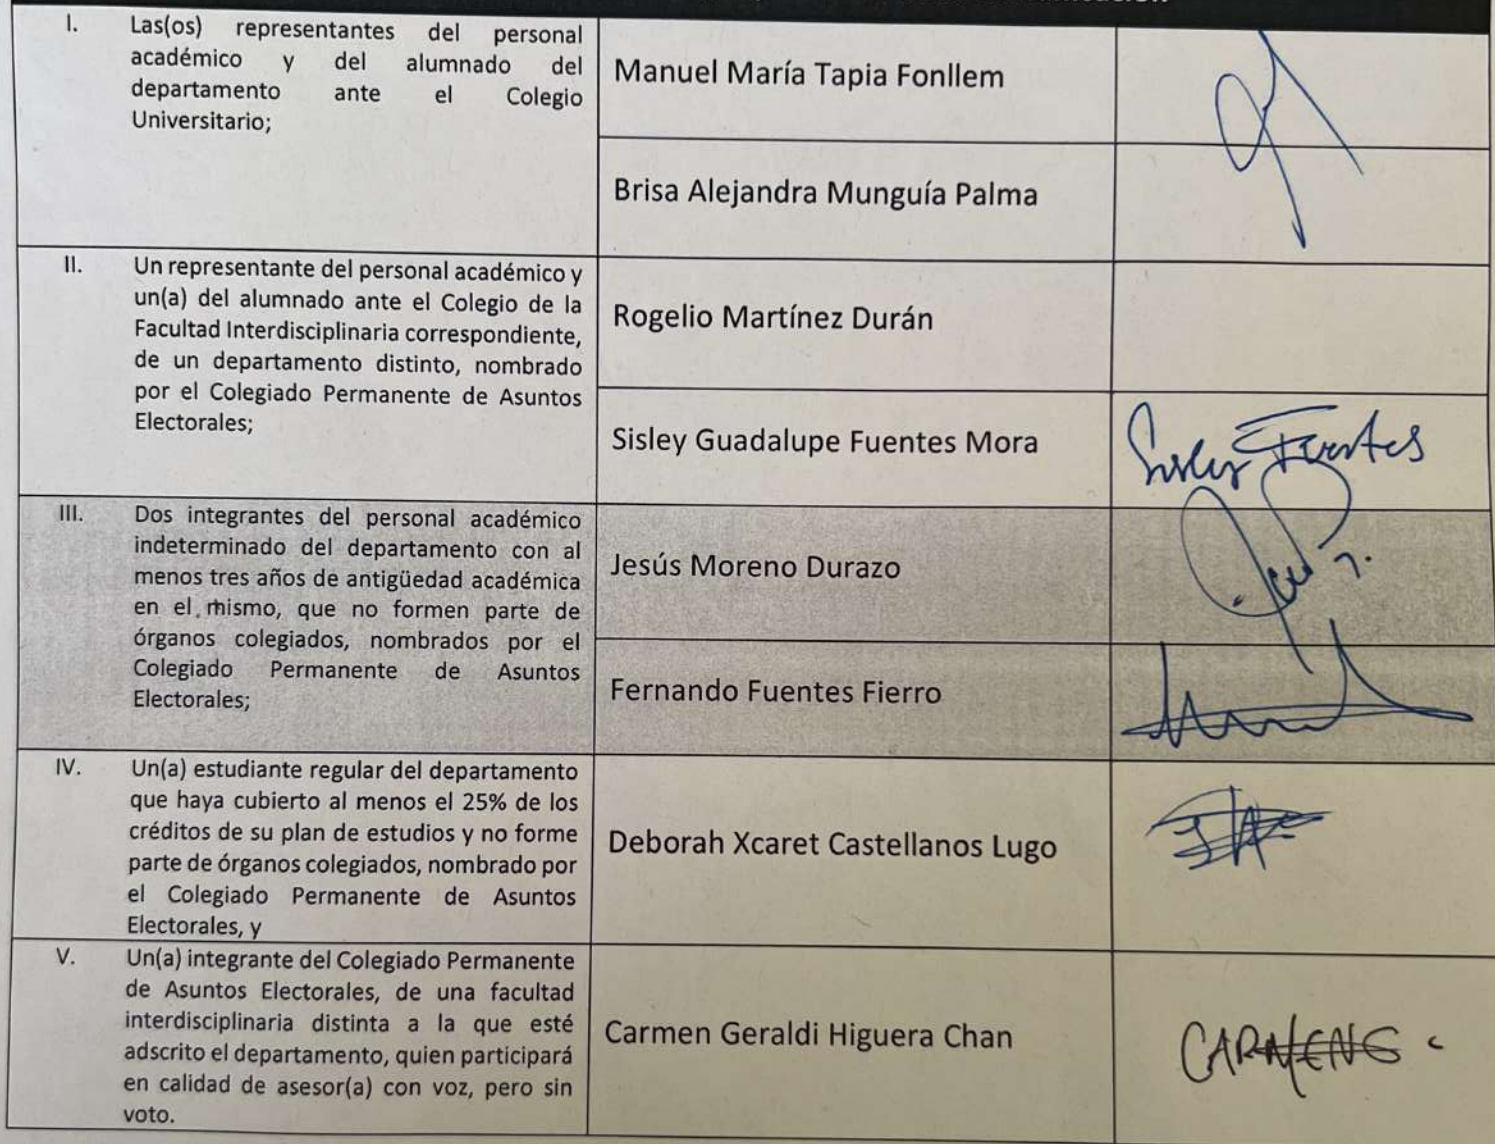 I. Las(os) representantes del personal
académico y del alumnado del
departamento ante el Colegio
Universitario;
Manuel María Tapia Fonllem
Brisa Alejandra Munguía Palma
II. Un representante del personal académico y
un(a) del alumnado ante el Colegio de la
Facultad Interdisciplinaria correspondiente,
de un departamento distinto, nombrado
por el Colegiado Permanente de Asuntos
Electorales;
Rogelio Martínez Durán
Sisley Guadalupe Fuentes Mora
Sisley Fuentes
III. Dos integrantes del personal académico
indeterminado del departamento con al
menos tres años de antigüedad académica
en el mismo, que no formen parte de
órganos colegiados, nombrados por el
Colegiado Permanente de Asuntos
Electorales;
Jesús Moreno Durazo
Fernando Fuentes Fierro
IV. Un(a) estudiante regular del departamento
que haya cubierto al menos el 25% de los
créditos de su plan de estudios y no forme
parte de órganos colegiados, nombrado por
el Colegiado Permanente de Asuntos
Electorales, y
Deborah Xcaret Castellanos Lugo
V. Un(a) integrante del Colegiado Permanente
de Asuntos Electorales, de una facultad
interdisciplinaria distinta a la que esté
adscrito el departamento, quien participará
en calidad de asesor(a) con voz, pero sin
voto.
Carmen Geraldi Higuera Chan
CARMENG